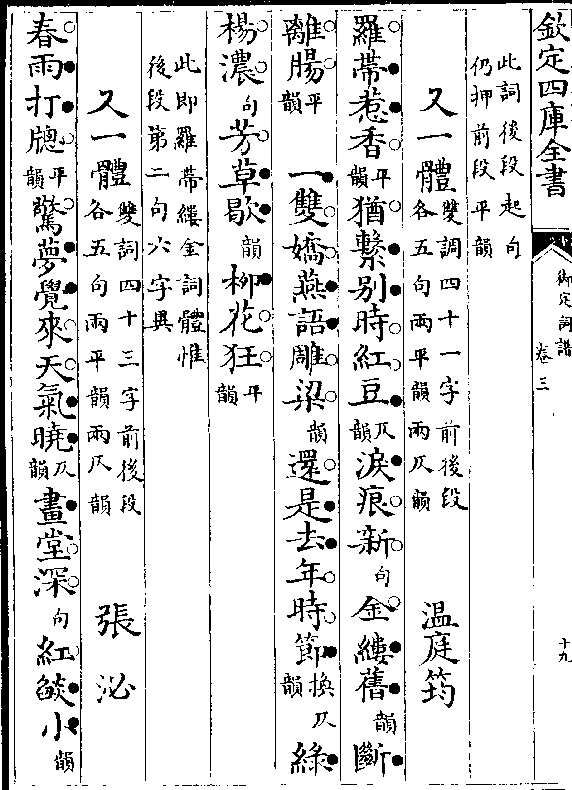 欽定四庫全書
御定詞譜
卷三
十九
此詞後段起句
仍押前段平韻
又一體雙調四十一字前後段
各五句兩平韻兩仄韻
温庭筠
羅帶惹香平韻猶繫别時紅豆仄韻淚痕新句金縷舊韻斷
離腸平韻 一雙嬌燕語雕梁韻還是去年時節換仄韻緑
楊濃句芳草歇韻柳花狂平韻
此即羅帶縷金詞體惟
後段第二句六字異
又一體雙詞四十三字前後段
各五句兩平韻兩仄韻
張泌
春雨打牕平韻驚夢覺來天氣曉仄韻畫堂深句紅燄小韻